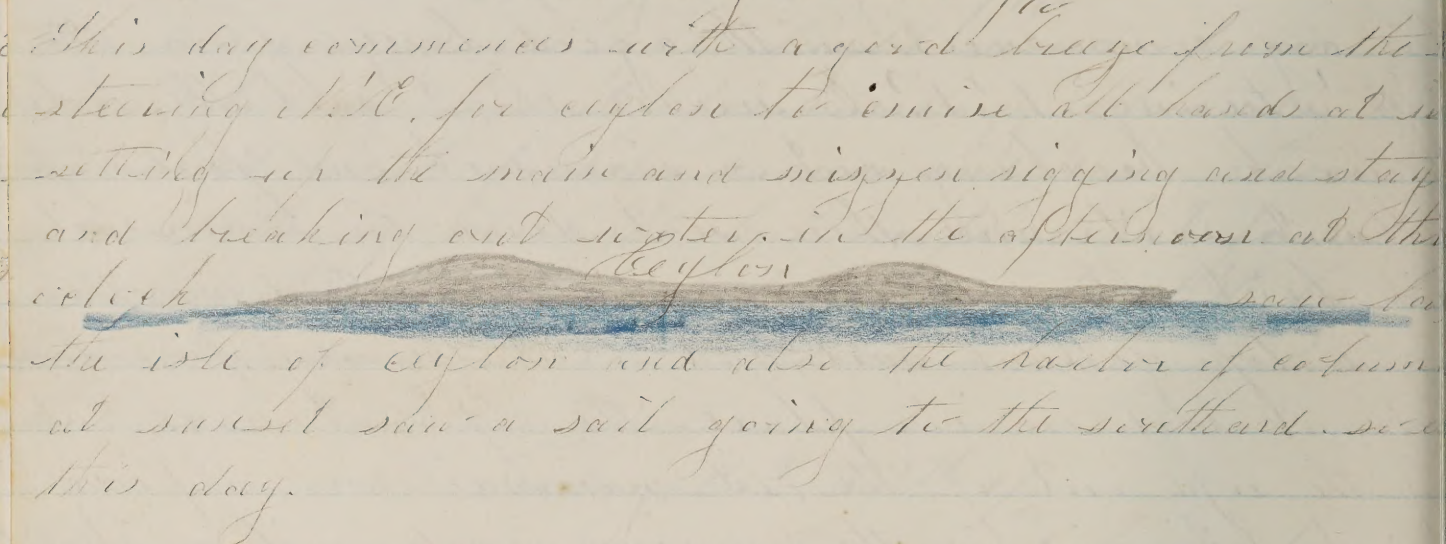 This day commences with a good breeze from the
steering N.E. for ceylon to cruise all hands at
setting up the main and mizzen rigging and stay
and breaking out water in the afternoon at th
Ceylon
oclock saw la
the isle of Ceylon and also the harbor of colum
at sunset saw a sail going to the southard so e
this day.